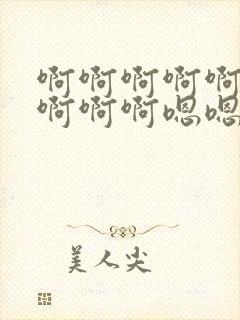 啊啊啊啊啊
啊啊啊嗯嗯
美人尖